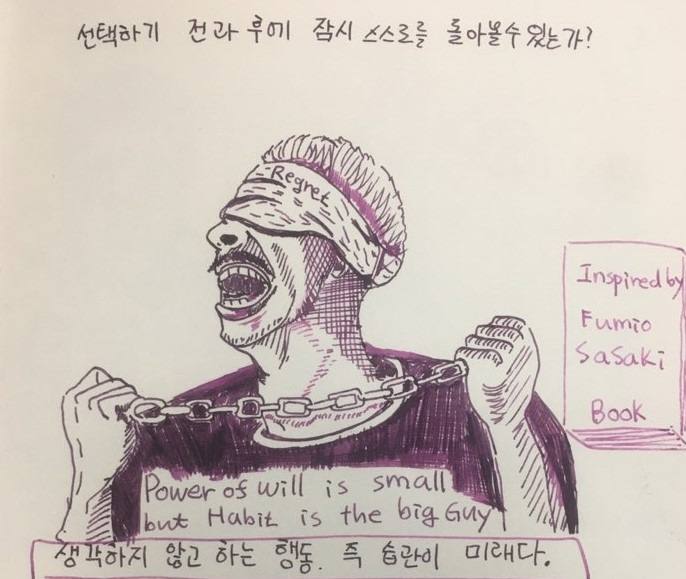 선택하기 전과 후에 잠시 스스로를 돌아볼수 있는가?
Regret
Inspired by
Fumio
Sasaki
Book
Power of will is small
but Habit is the big Guy
생각하지 않고 하는 행동. 즉 습관이 미래다.